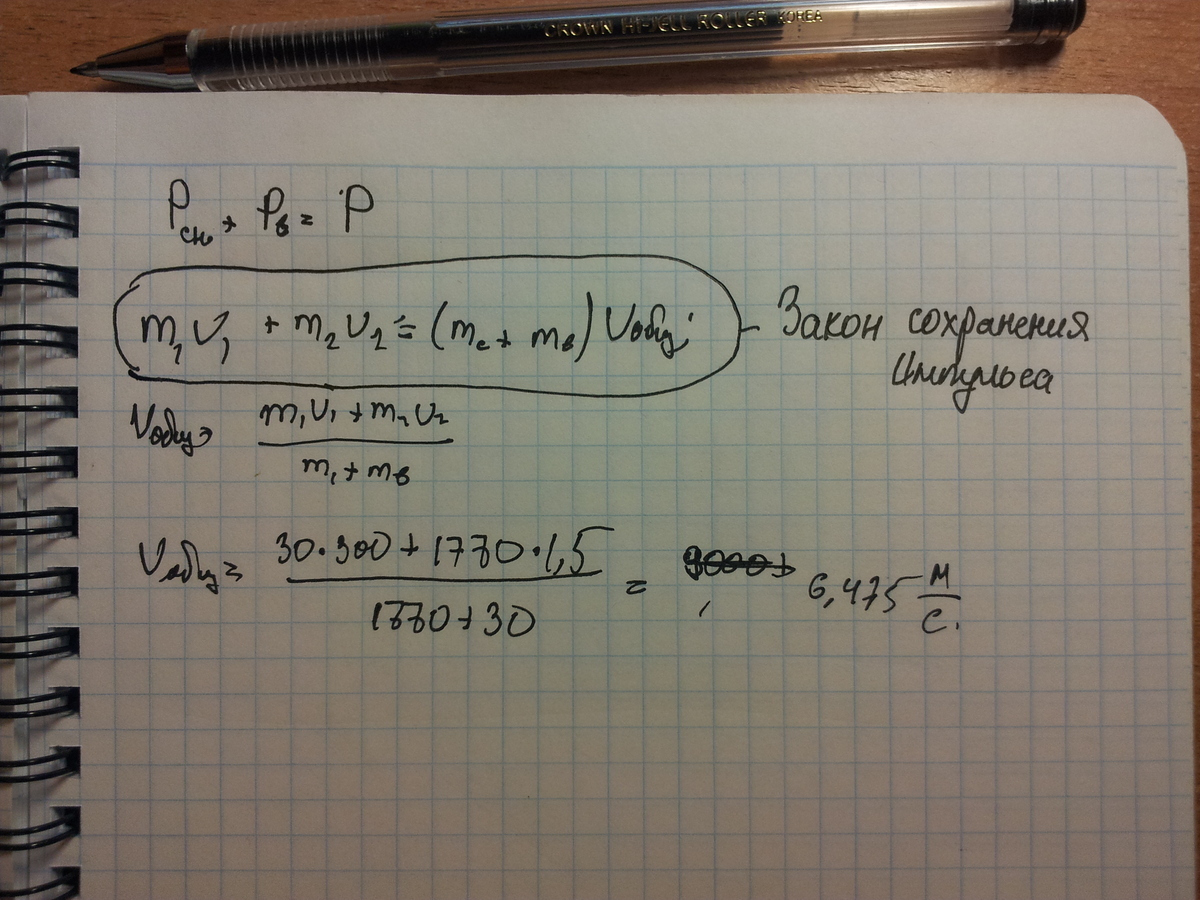 CROWN HI-JELL ROLLER KOREA
Pсн + Pв = P
m₁U₁ + m₂U₂ = (mс + mв) Uобщ; - Закон сохранения
Импульса
Uобщ = (m₁U₁ + m₂U₂) / (m₁ + mв)
Uобщ = (30·300 + 1770·1,5) / (1770 + 30) = 6,475 м/с.